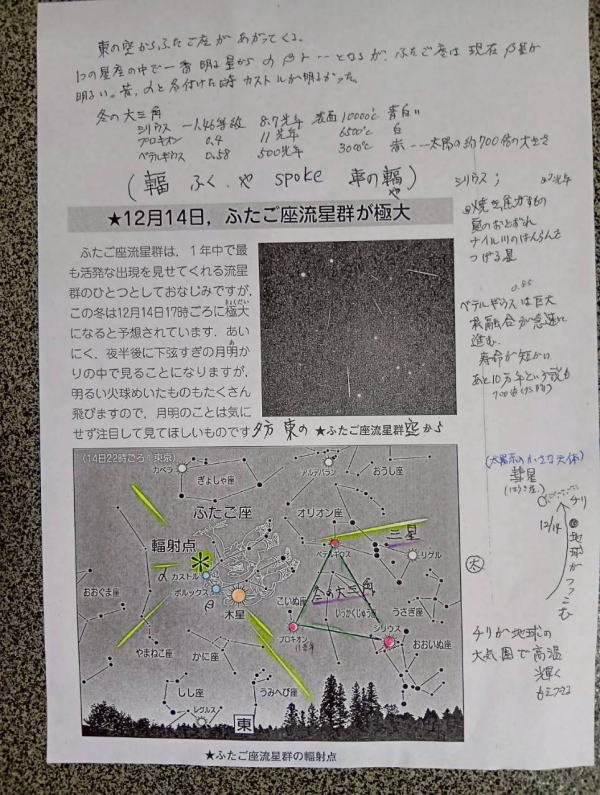 東の空からふたご座があがってくる。
1つの星座の中で一番明るい星から α β γ ・・・となるが、ふたご座は現在β星が
明るい。昔、αと名付けた時カストルが明るかった。
冬の大三角
シリウス －1.46等級 8.7光年 表面10000℃ 青白い
プロキオン 0.4 11光年 6500℃ 白
ベテルギウス 0.58 500光年 3000℃ 赤 ---太陽の約700倍の大きさ
(輻 ふく、や spoke 車の輻)
や
★12月14日，ふたご座流星群が極大
ふたご座流星群は，１年中で最
も活発な出現を見せてくれる流星
群のひとつとしておなじみですが，
きょくだい
この冬は12月14日17時ごろに極大
になると予想されています．あい
あ
にく、夜半後に下弦すぎの月明か
りの中で見ることになりますが，
明るい火球めいたものもたくさん
飛びますので，月明のことは気に
せず注目して見てほしいものです
夕方 東の ★ふたご座流星群 空から
シリウス；
焼き焦がすもの
夏のおとずれ
ナイル川のはんらんを
つげる星
ベテルギウスは巨大
核融合が急速に
進む。
寿命が短かい
あと10万年という説も
(太陽系の小さな天体)
彗星
(ほうき星)
チリ
12/14
地球がつっこむ
チリが地球の
大気圏で高温
輝く
(14日22時ごろ 東京)
カペラ
ぎょしゃ座
アルデバラン
おうし座
ふたご座
オリオン座
三星
輻射点
ベテルギウス
リゲル
α
カストル
おおぐま座
ポルックス
β
木星
こいぬ座
冬の大三角
いっかくじゅう座
うさぎ座
プロキオン
11光年
シリウス
おおいぬ座
やまねこ座
かに座
しし座
うみへび座
レグルス
東
★ふたご座流星群の輻射点